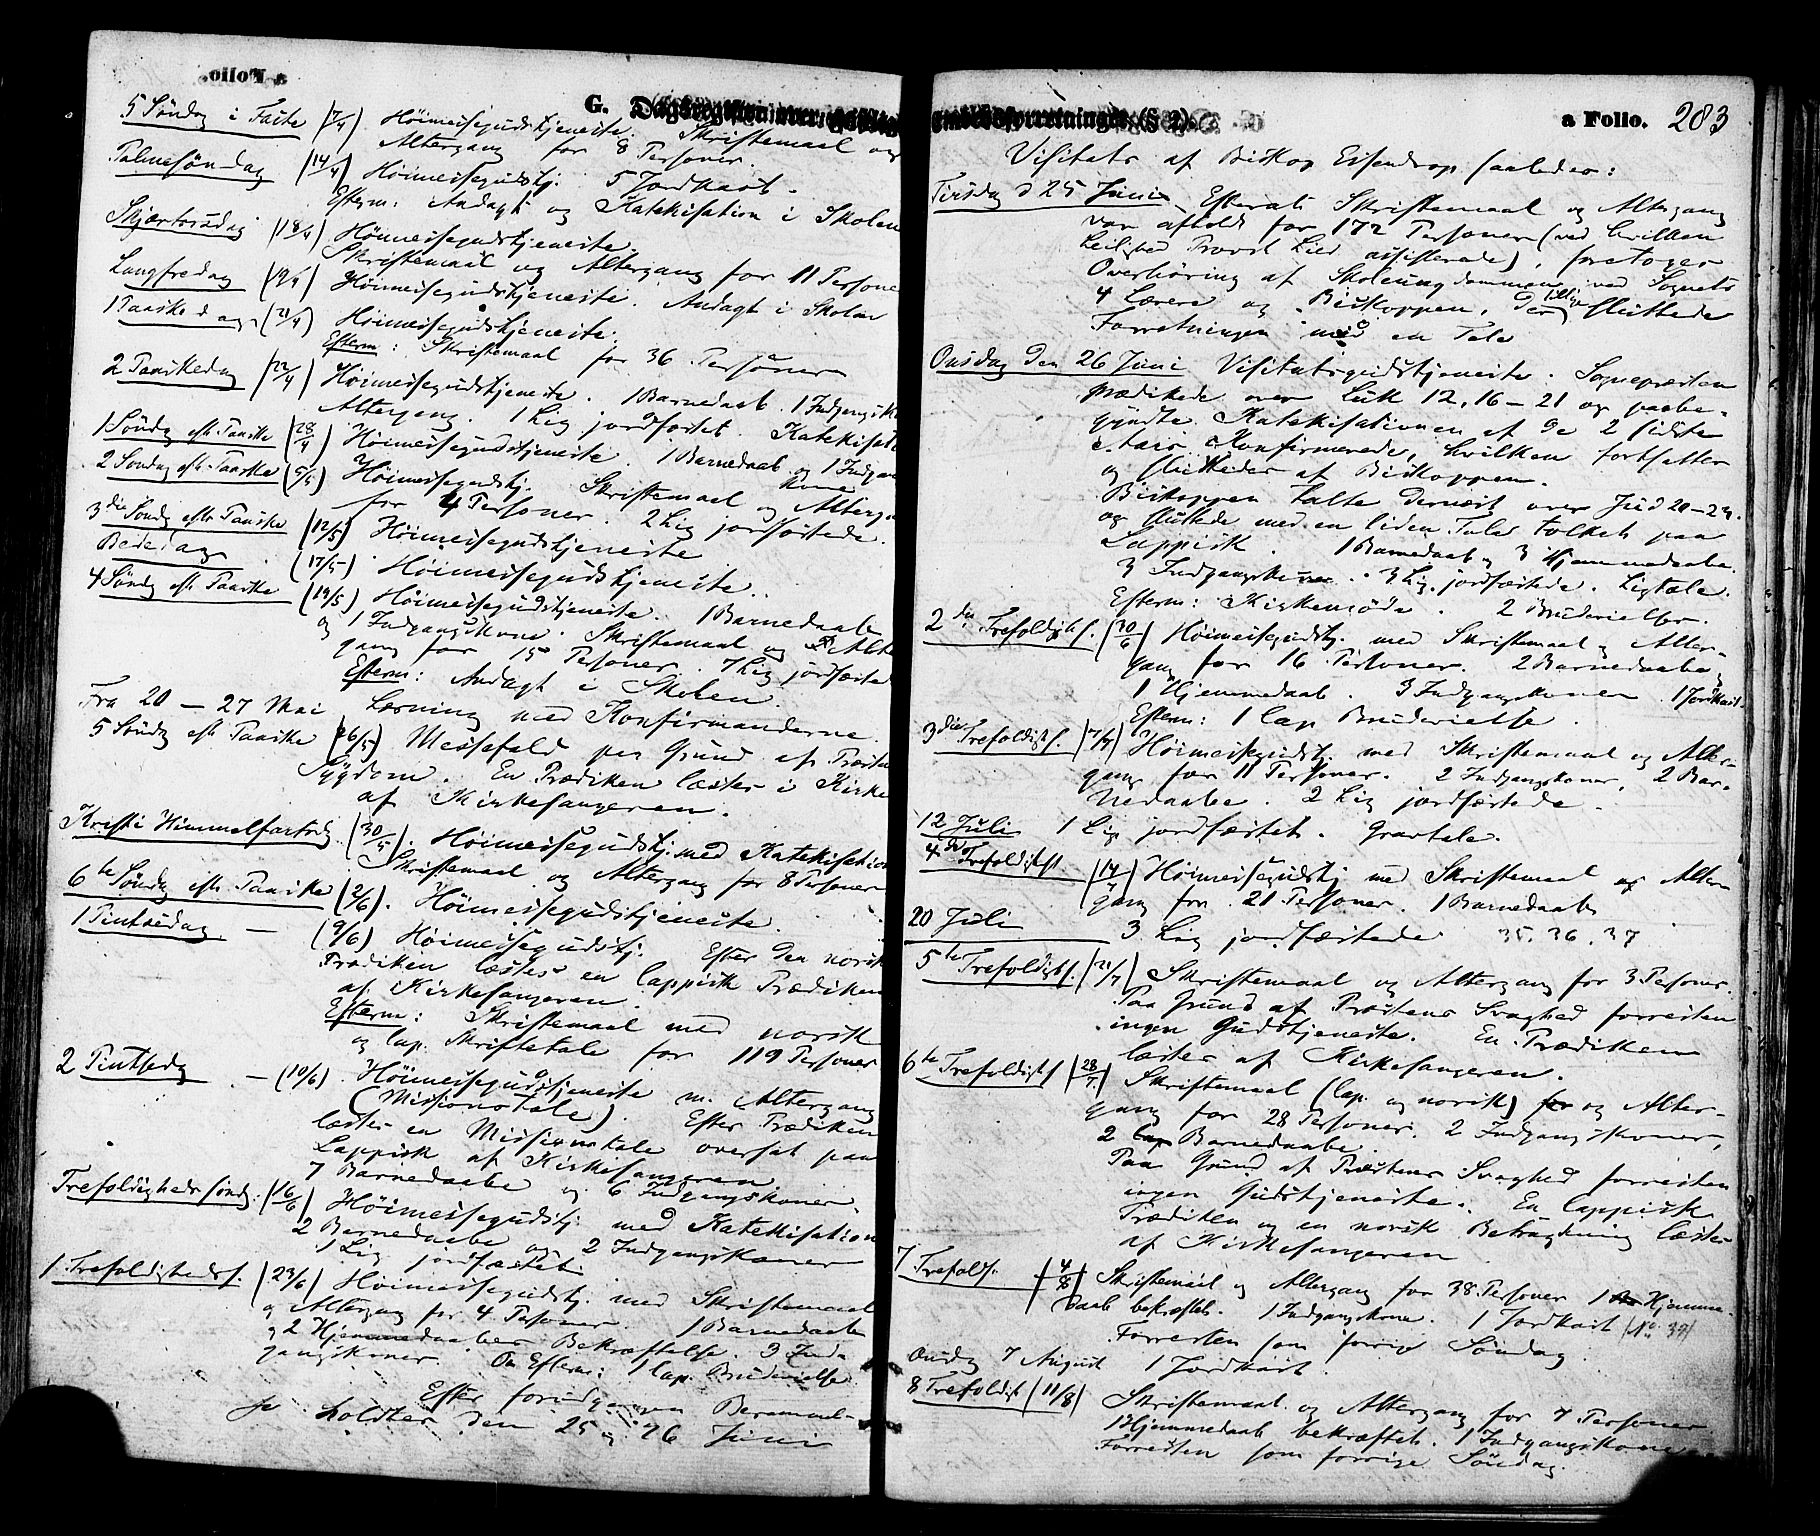 a Folio.
G. Dagsregister over geistlige
5 Søndag i Faste (7/4) Høimessegudstjeneste. Skriftemaal og
Altergang for 8 Personer.
Palmesøndag (14/4) Høimessegudstj. 5 Jordkast.
Efterm: Andagt og Katekisation i Skolen
Skjærtorsdag (18/4) Høimessegudstjeneste.
Skriftemaal og Altergang for 11 Persone
Langfredag (19/4) Høimessegudstjeneste. Andagt i Skolen
1 Paaskedag (21/4) Høimessegudstjeneste.
Efterm: Skriftemaal for 36 Personer
2 Paaskedag (22/4) Høimessegudstjeneste. 1 Barnedaab. 1 Indgangsk
Altergang. 1 Lig jordfæstet. Katekisati
1 Søndag eft. Paaske (28/4) Høimessegudstjeneste. 1 Barnedaab og 1 Indgan
kone
2 Søndag eft. Paaske (5/5) Høimessegudstj. Skriftemaal og Alterga
for 4 Personer. 2 Lig jordfæstede.
3die Søndg eft. Paaske (12/5) Høimessegudstjeneste
Bededag (17/5) Høimessegudstjeneste.
4 Søndg eft Paaske (19/5) Høimessegudstjeneste. 1 Barnedaab
og 1 Indgangskone. Skriftemaal og Alte
gang for 15 Personer. 7 Lig jordfæstede
Efterm: Andagt i Skolen.
Fra 20 — 27 Mai Læsning med Konfirmanderne.
5 Søndg eft Paaske (26/5) Messefald paa Grund af Præsten
Sygdom. En Prædiken læstes i Kirke
af Kirkesangeren.
Kristi Himmelfartsdg (30/5) Høimessegudstj. med Katekisation
Skriftemaal og Altergang for 8 Personer
6te Søndg eft. Paaske (2/6). Høimessegudstjeneste.
1 Pintsedag — (9/6) Høimessegudstj. Efter den norsk
Prædiken læstes en lappisk Prædiken
af Kirkesangeren.
Efterm: Skriftemaal med norsk
og lap. Skriftetale for 119 Personer
2 Pintsedg — (10/6). Høimessegudstjeneste m. Altergang
(Missionstale). Efter Prædiken
læstes en Missionstale oversat paa
Lappisk af Kirkesangeren.
7 Barnedaabe og 6 Indgangskoner.
Trefoldighedssøndg: (16/6) Høimessegudstj med Katekisation
2 Barnedaabe og 2 Indgangskoner
1 Lig jordfæstet
1. Trefoldigheds s. (23/6) Høimessegudstj. med Skriftemaal
og Altergang for 4 Personer. 1 Barnedaab
og 2 Hjemmedaabes Bekræftelse. 3 Ind-
gangskoner. Om Efterm: 1 lap. Brudevielse
Efter forudgaaen
holdtes den 25 og 26 Juni
embedsforretninger (§ 2). a Folio. 283
Visitats af Biskop saaledes:
Tirsdag d 25 Juni Efterat Skriftemaal og Altergang
var afholdt for 172 Personer (ved hvilken
Leilighed Provst Lied assisterede), foretoges
Overhøring af Skoleungdommen ved Sognets
4 Lærere og Biskoppen, der tillige sluttede
Forretningen med en Tale
Onsdag den 26 Juni Visitatsgudstjeneste. Sognepræsten
prædikede over Luk 12, 16—21 og paabe-
gyndte Katekisationen af de 2 sidste
Aars Konfirmerede, hvilken fortsattes
og sluttedes af Biskoppen.
Biskoppen talte dernæst over Jud 20—21
og sluttede med en liden Tale tolket paa
Lappisk. 1 Barnedaab og 3 Hjemmedaabe.
3 Indgangskoner. 3 Lig jordfæstede. Ligtale.
Efterm: Kirkemøde. 2 Brudevielser.
2den Trefoldighs. (30/6) Høimessegudstj. med Skriftemaal og Alter-
gang for 16 Personer. 2 Barnedaabe,
1 Hjemmedaab. 3 Indgangskoner 1 Jordkast.
Efterm: 1 lap Brudevielse.
3die Trefoldigts. (7/7) Høimessegudstj. med Skriftemaal og Alter-
gang for 11 Personer. 2 Indgangskoner, 2 Bar-
nedaabe. 2 Lig jordfæstede.
12 Juli 1 Lig jordfæstet. Gravtale.
4de Trefoldigst (14/7) Høimessegudstj med Skriftemaal og Alter
gang for 21 Personer. 1 Barnedaab
20 Juli 3 Lig jordfæstede 35. 36. 37
5te Trefoldigts. (21/7) Skriftemaal og Altergang for 3 Personer.
Paa Grund af Præstens Svaghed forresten
ingen Gudstjeneste. En Prædiken
læstes af Kirkesangeren.
6te Trefoldigts (28/7) Skriftemaal (lap. og norsk) og Alter-
gang for 28 Personer. 2 Indgangskoner,
2 Barnedaabe.
Paa Grund af Præstens Svaghed forresten
ingen Gudstjeneste. En lappisk
Prædiken og en norsk Betragtning læstes
af Kirkesangeren
7 Trefolds. (4/8) Skriftemaal og Altergang for 38 Personer 1 Hjemme-
daab bekræftet. 1 Indgangskone. 1 Jordkast (No 39)
Forresten som forrige Søndag.
Onsdg 7 August 1 Jordkast.
8 Trefoldigt (11/8) Skriftemaal og Altergang for 7 Personer
1 Hjemmedaab bekræftet. 1 Indgangskone
Forresten som forrige Søndag.